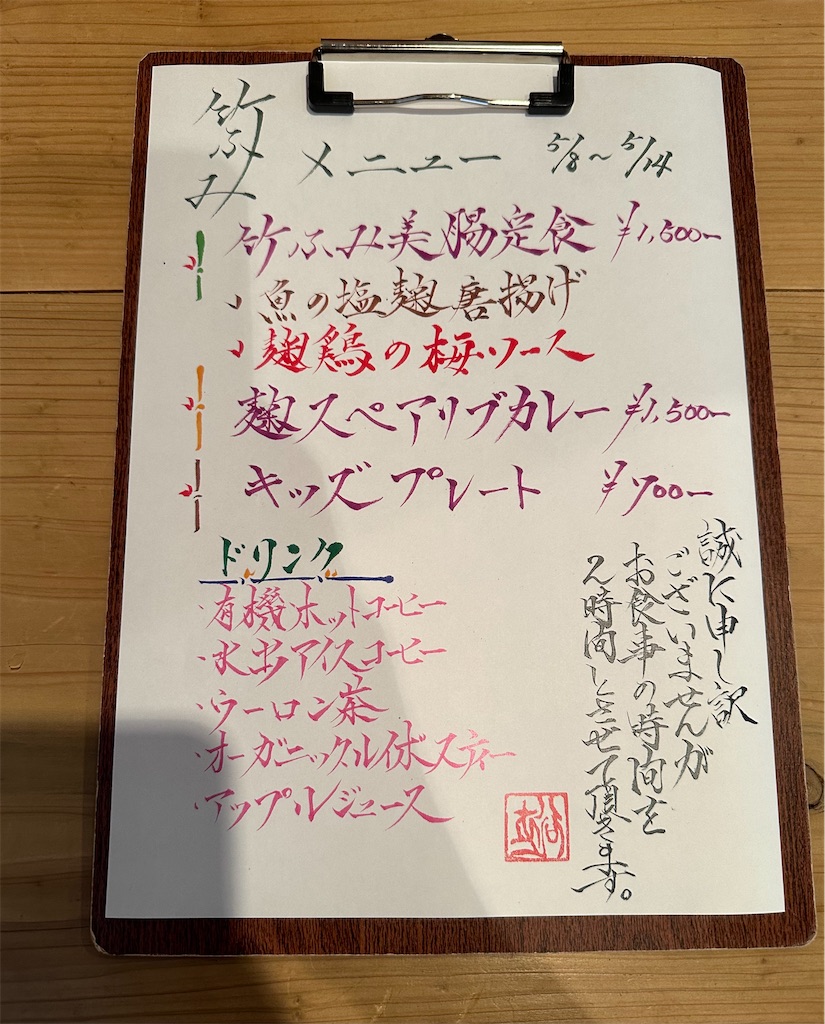 竹ふみ
メニュー 5/8～5/14
竹ふみ美腸定食 ¥1,500-
魚の塩麹唐揚げ
麹鶏の梅ソース
麹スペアリブカレー ¥1,500-
キッズプレート ¥700-
ドリンク
・有機ホットコーヒー
・水出アイスコーヒー
・ウーロン茶
・オーガニックルイボスティー
・アップルジュース
誠に申し訳
ございませんが
お食事の時間を
2時間とさせて頂きます。